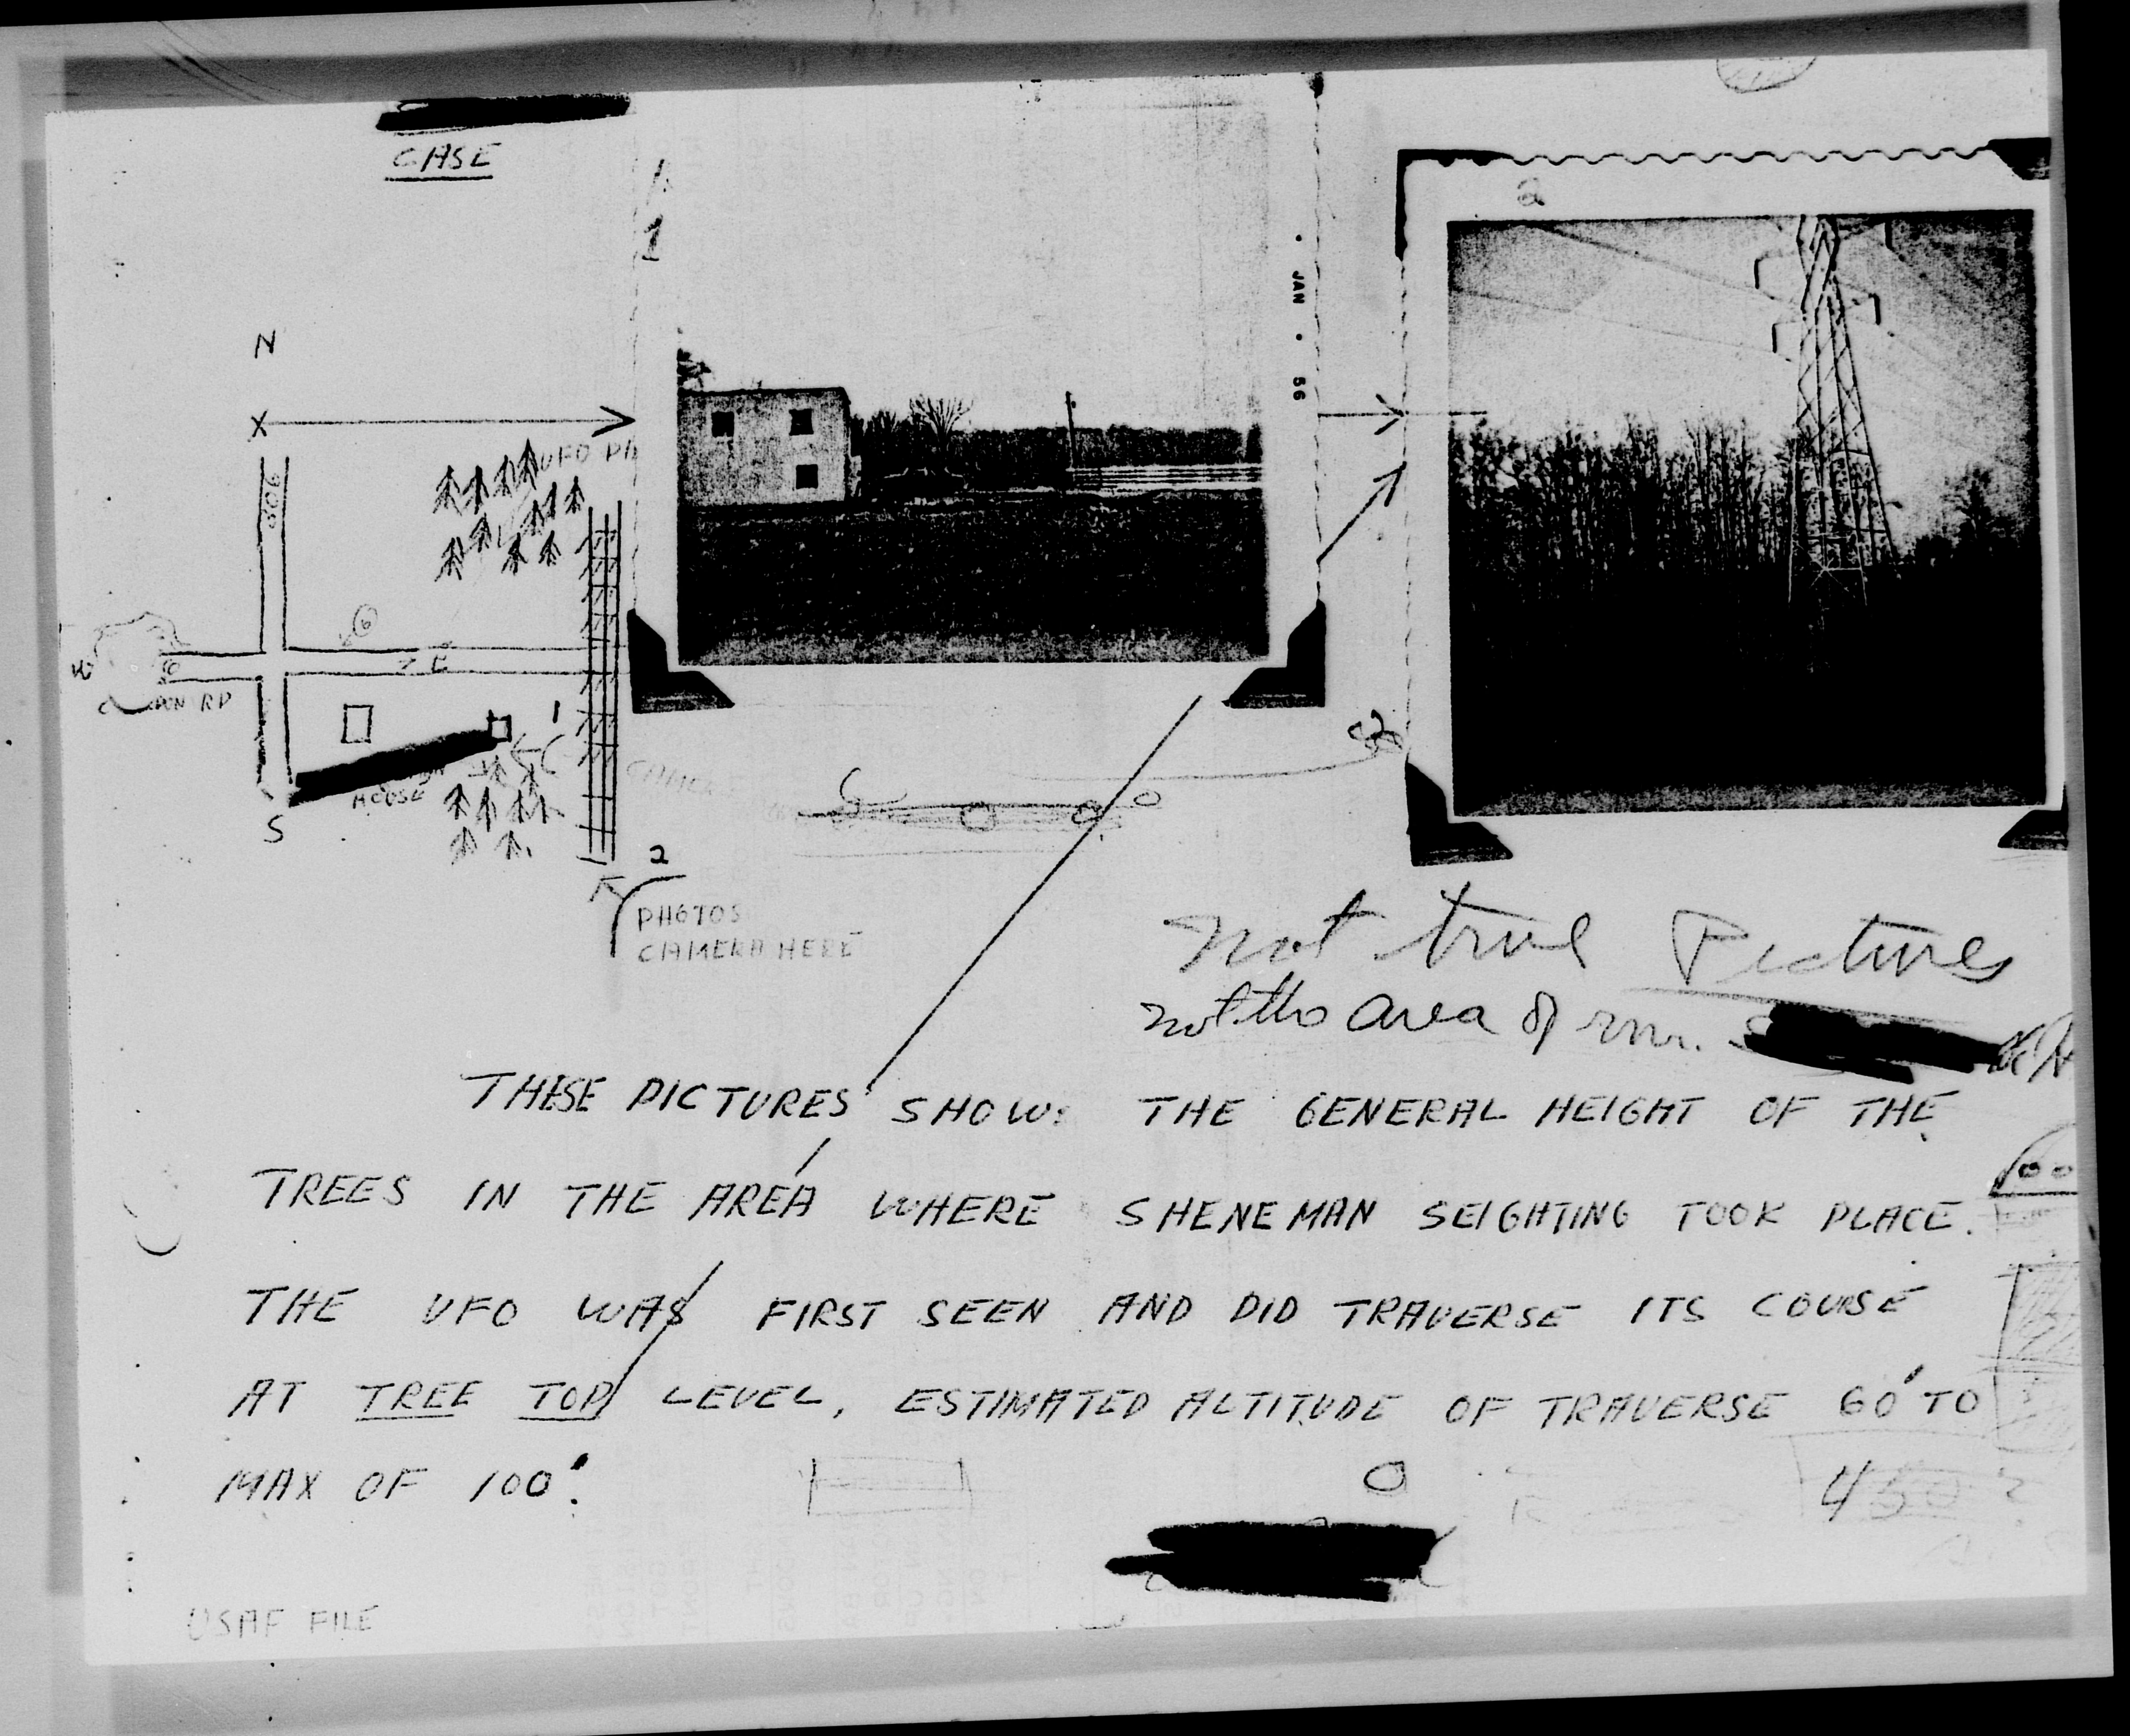 CASE
1
2
JAN • 56
N
X
UFO
ROAD
6
W
E
RD
1
HOUSE
S
2
PHOTOS
CAMERA HERE
Not true Pictures
not the area of mr.
THESE PICTURES SHOW THE GENERAL HEIGHT OF THE
TREES IN THE AREA WHERE SHENEMAN SEIGHTING TOOK PLACE.
THE UFO WAS FIRST SEEN AND DID TRAVERSE ITS COURSE
AT TREE TOP LEVEL, ESTIMATED ALTITUDE OF TRAVERSE 60' TO
MAX OF 100'.
USAF FILE